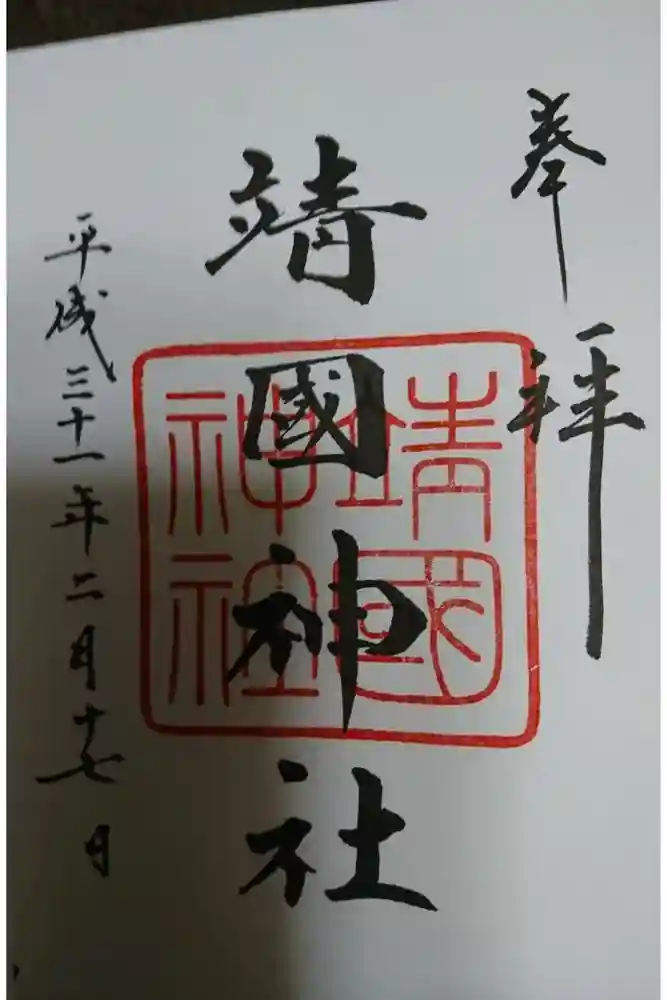 奉拝
靖國神社
靖國
神社
平成三十一年二月十七日